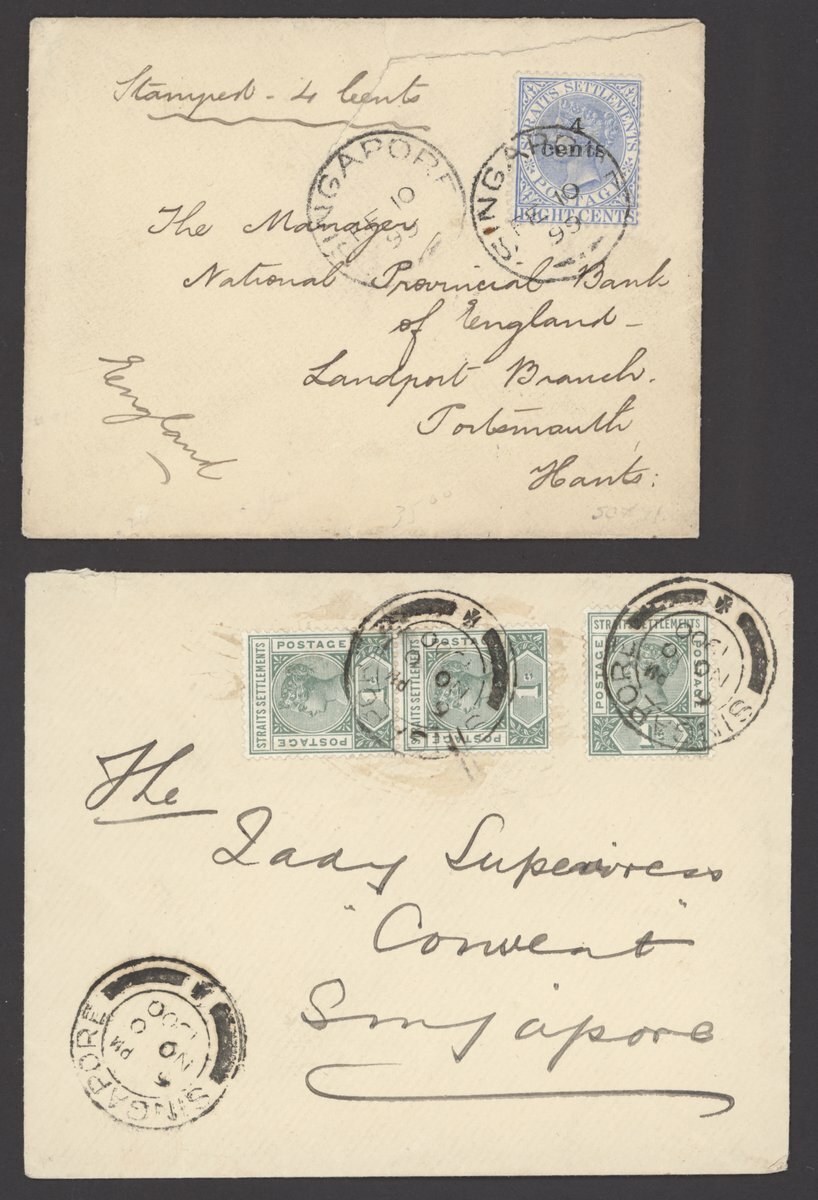 Stamped - 4 Cents
STRAITS SETTLEMENTS
4
cents
POSTAGE
EIGHT CENTS
SINGAPORE
FE 10
99
SINGAPORE
FE 10
99
The Manager
National Provincial Bank
of England -
Landport Branch.
Portsmouth
Hants:
England
STRAITS SETTLEMENTS
POSTAGE
POSTAGE
STRAITS SETTLEMENTS
POSTAGE
POSTAGE
1c
STRAITS SETTLEMENTS
POSTAGE
POSTAGE
SINGAPORE
PM
NO
1900
SINGAPORE
PM
NO
1900
The
Lady Superioress
"Convent"
Singapore
SINGAPORE
PM
NO
1900